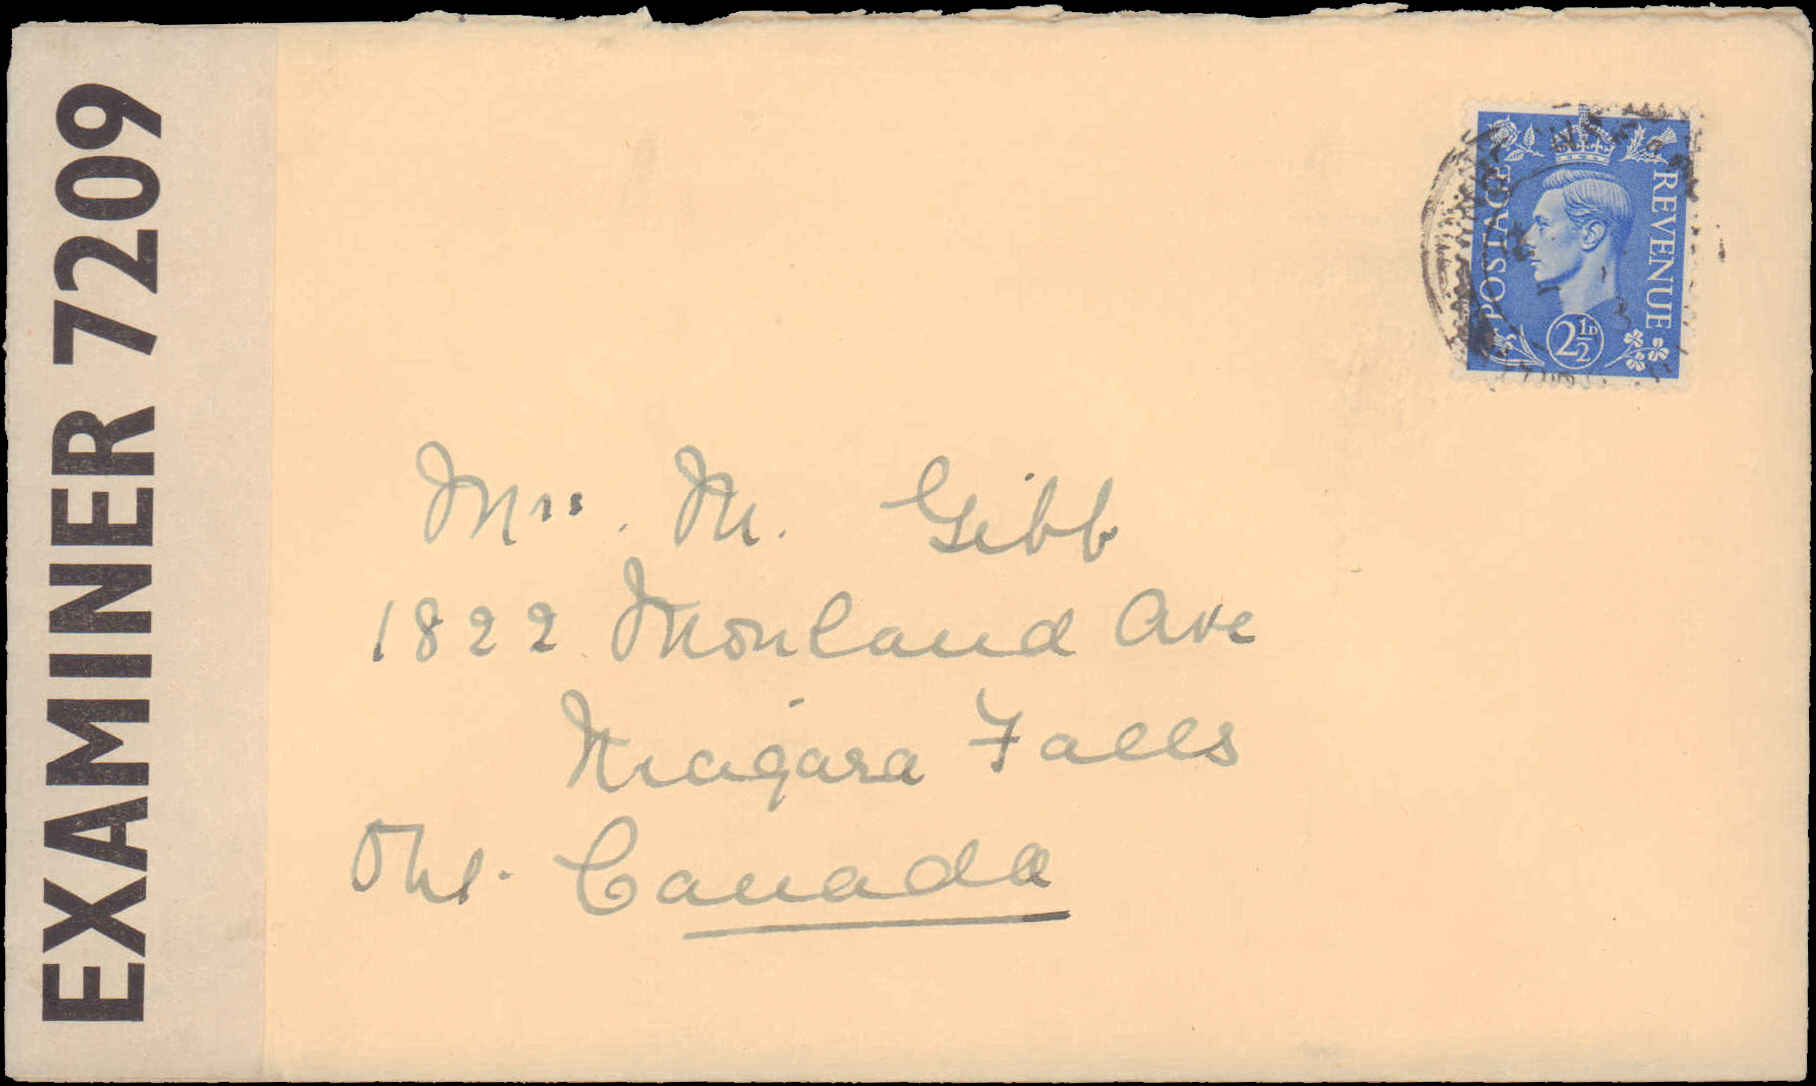 EXAMINER 7209
POSTAGE
REVENUE
2½D
Mrs. M. Gibb
1822 Monland Ave
Niagara Falls
Ont. Canada